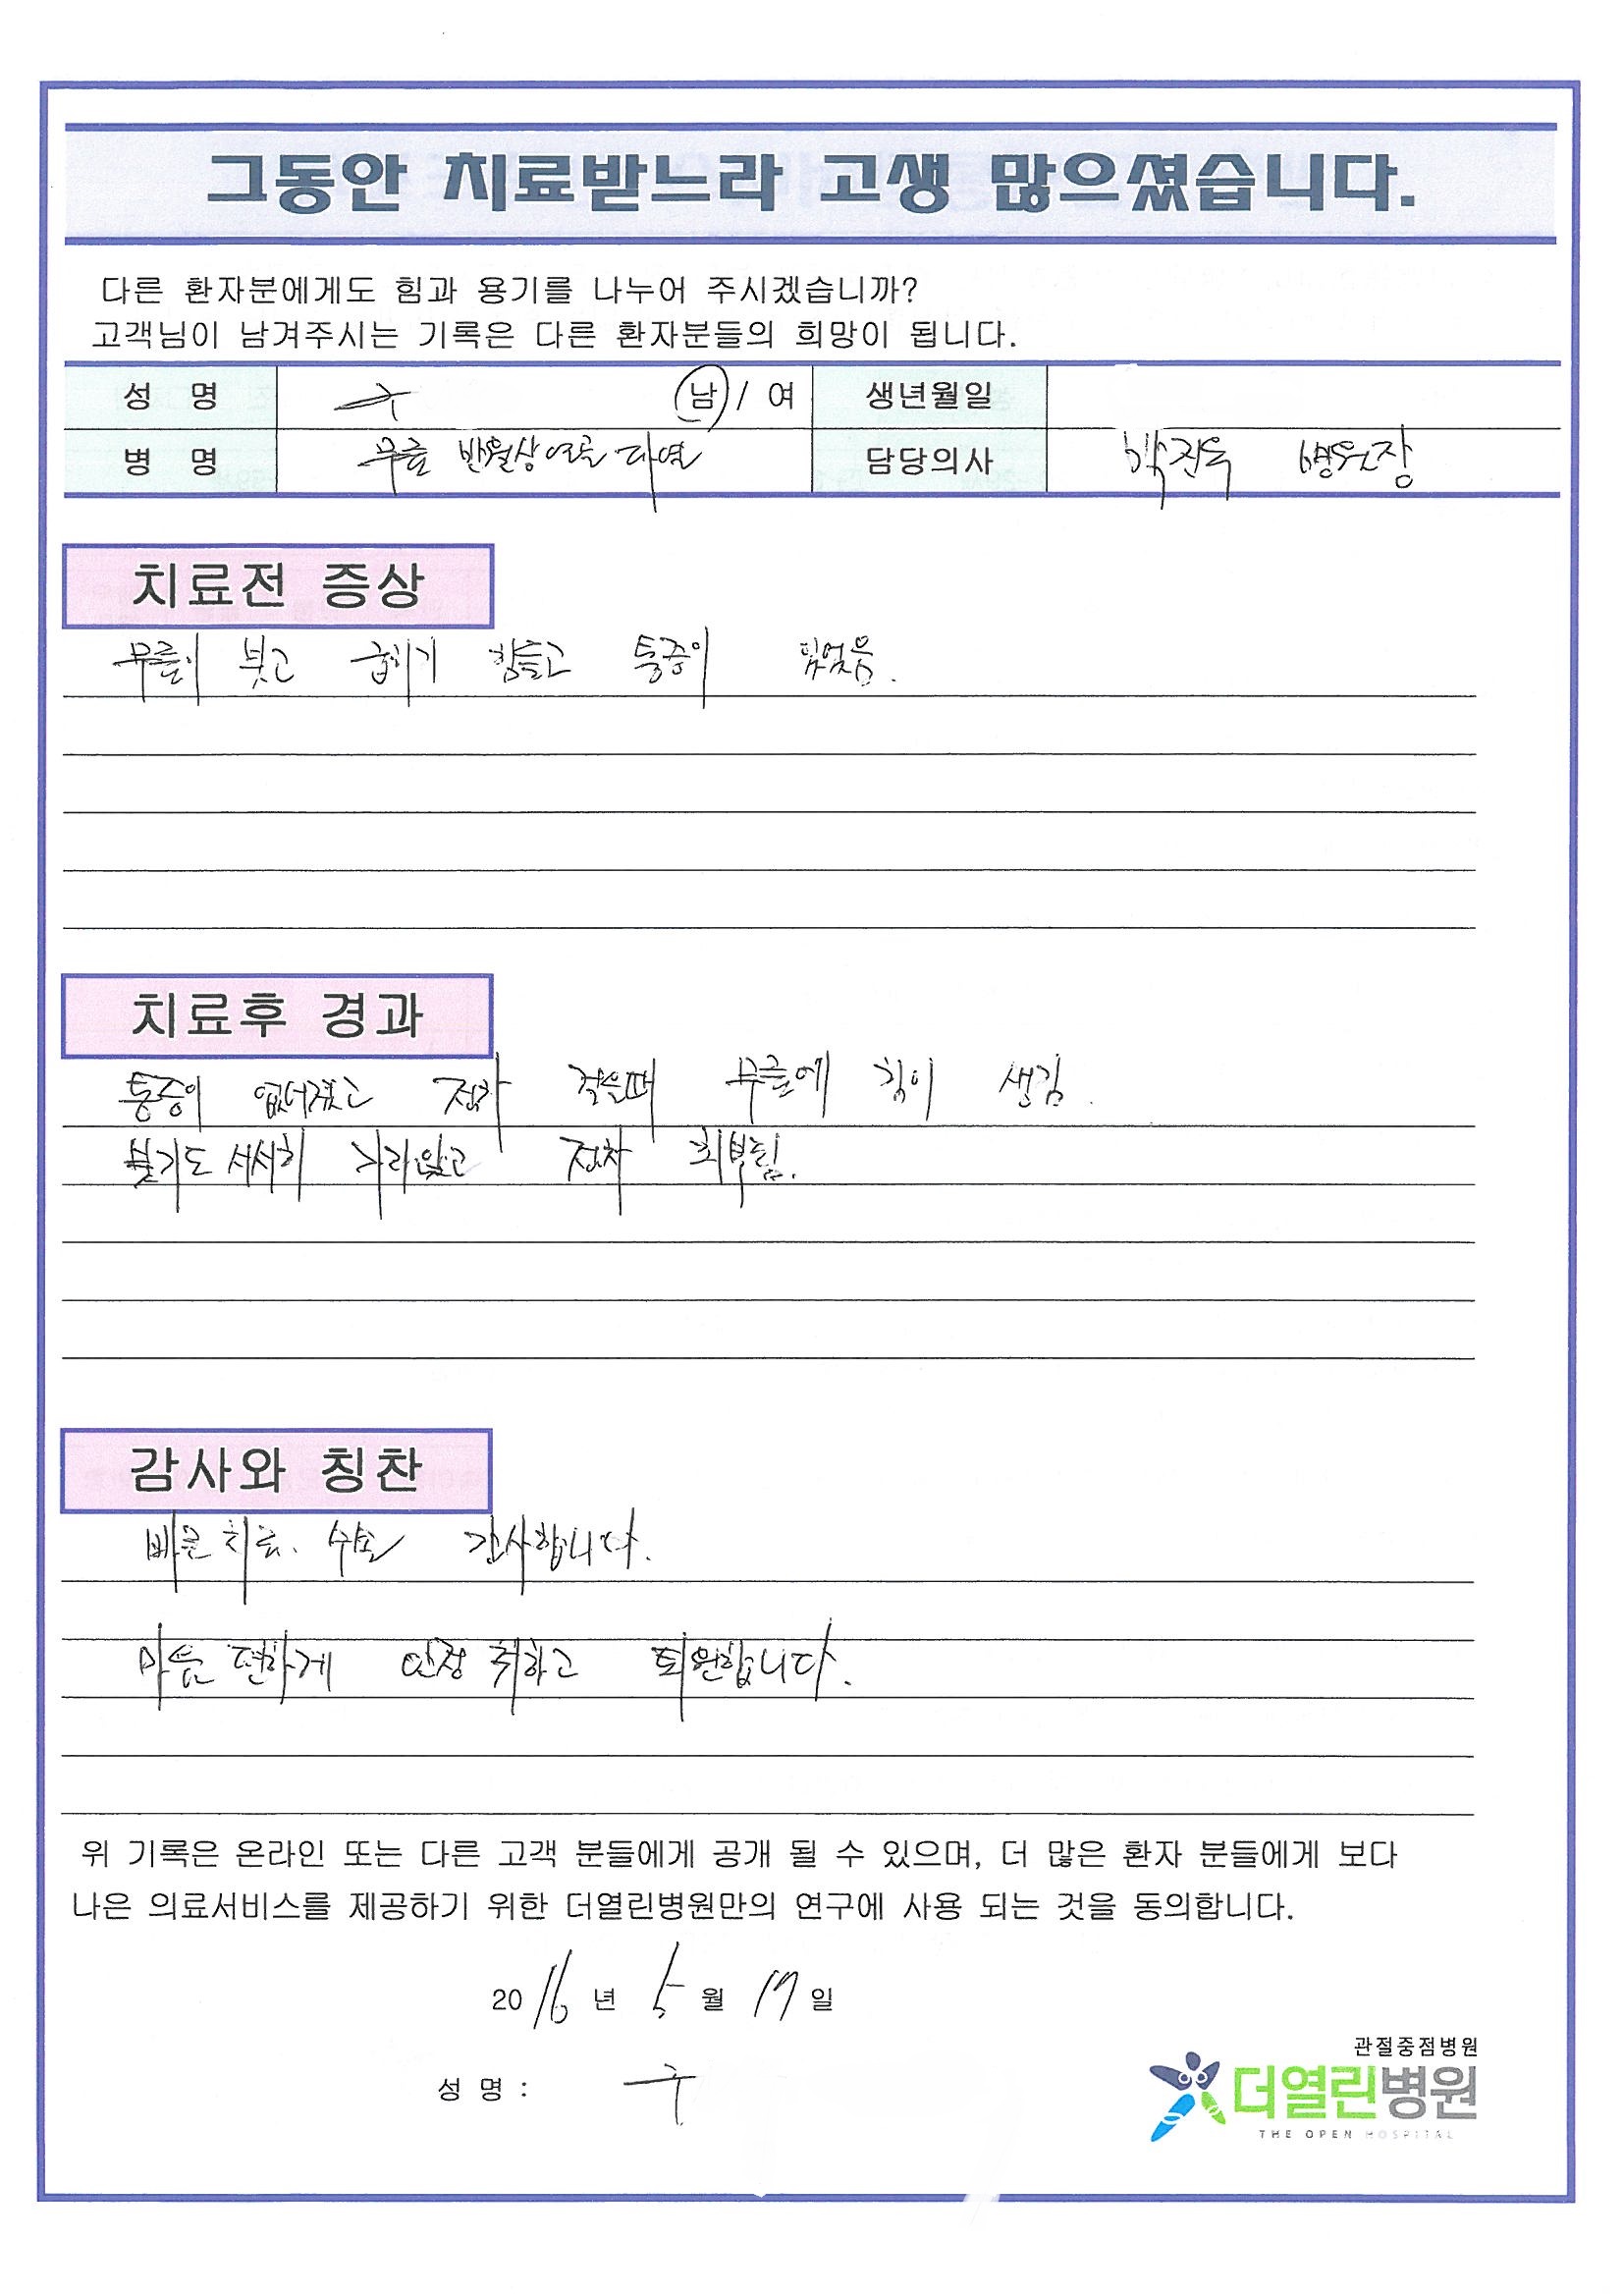 그동안 치료받느라 고생 많으셨습니다.
다른 환자분에게도 힘과 용기를 나누어 주시겠습니까?
고객님이 남겨주시는 기록은 다른 환자분들의 희망이 됩니다.
성 명 남 / 여 생년월일
병 명 무릎 반월상 연골 파열 담당의사 박진욱 병원장
치료전 증상
무릎이 붓고 굽히기 힘들고 통증이 있었음.
치료후 경과
통증이 없어졌고 점차 걸을때 무릎에 힘이 생김.
붓기도 서서히 가라앉고 점차 회복됨.
감사와 칭찬
빠른 치료. 수술 감사합니다.
마음 편하게 안정 취하고 퇴원합니다.
위 기록은 온라인 또는 다른 고객 분들에게 공개 될 수 있으며, 더 많은 환자 분들에게 보다
나은 의료서비스를 제공하기 위한 더열린병원만의 연구에 사용 되는 것을 동의합니다.
2016년 5월 17일
성 명 :
관절중점병원
더열린병원
THE OPEN HOSPITAL